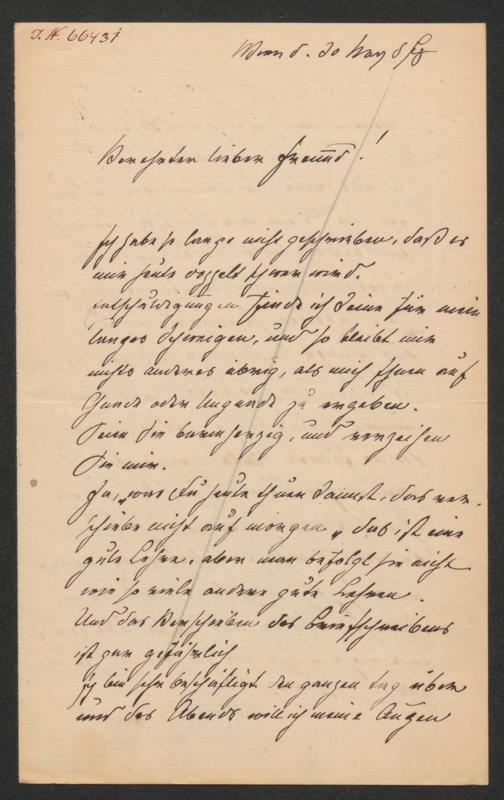 I. N. 66431
Wien d. 30 May
Verehrter lieber Freund!
Ich habe so lange nicht geschrieben, daß es
mir heute doppelt schwer wird.
Entschuldigungen finde ich keine für mein
langes Schweigen, und so bleibt mir
nichts anderes übrig, als mich Ihnen auf
Gnade oder Ungnade zu ergeben.
Seien Sie barmherzig, und verzeihen
Sie mir.
Ja, „was Du heute thun kannst, das ver-
schiebe nicht auf morgen„ das ist eine
gute Lehre, aber man befolgt sie nicht
wie so viele andere gute Lehren.
Und das Verschieben des Briefschreibens
ist gar gefährlich
Ich bin sehr beschäftigt den ganzen Tag über
und des Abends will ich meine Augen